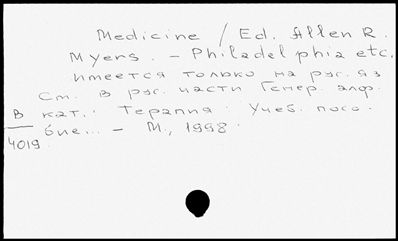 Medicine / Ed. Allen R.
Myers. – Philadelphia etc.
имеется только на рус. яз
См. в рус. части Генер. алф.
кат.: Терапия: Учеб. посо-
бие... – М., 1998.
В
4019